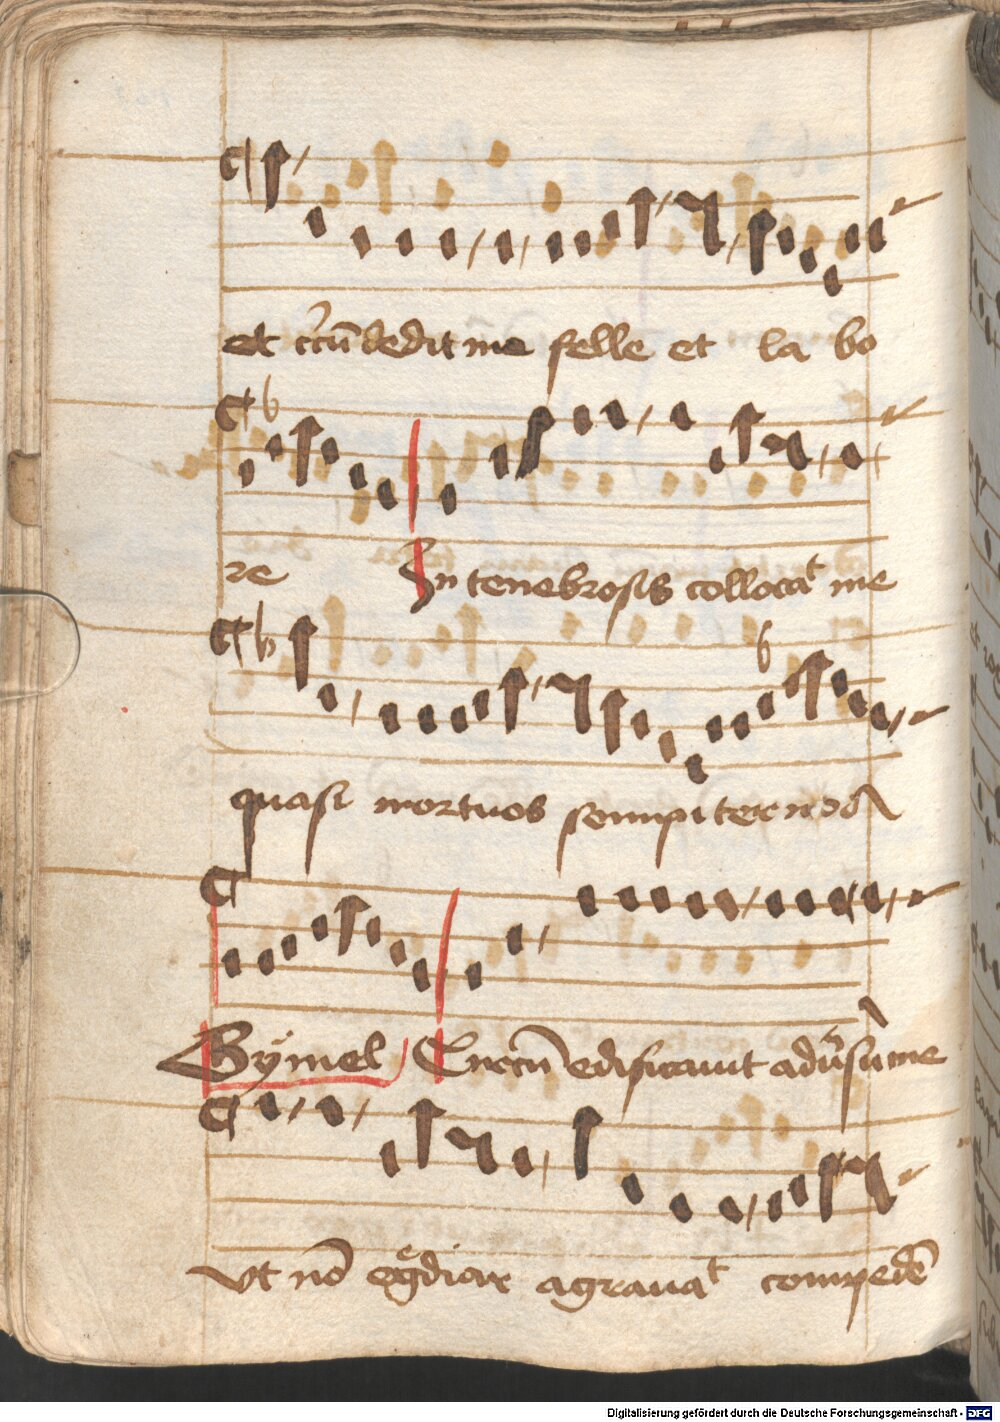 et c̄cūdedit me felle et la bo
re In tenebrosis collocat me
quasi mortuos sempiternos
Gymel Circū edificauit adūsū me
Vt nō egͤdiar agrauat compedē
Digitalisierung gefördert durch die Deutsche Forschungsgemeinschaft - DFG